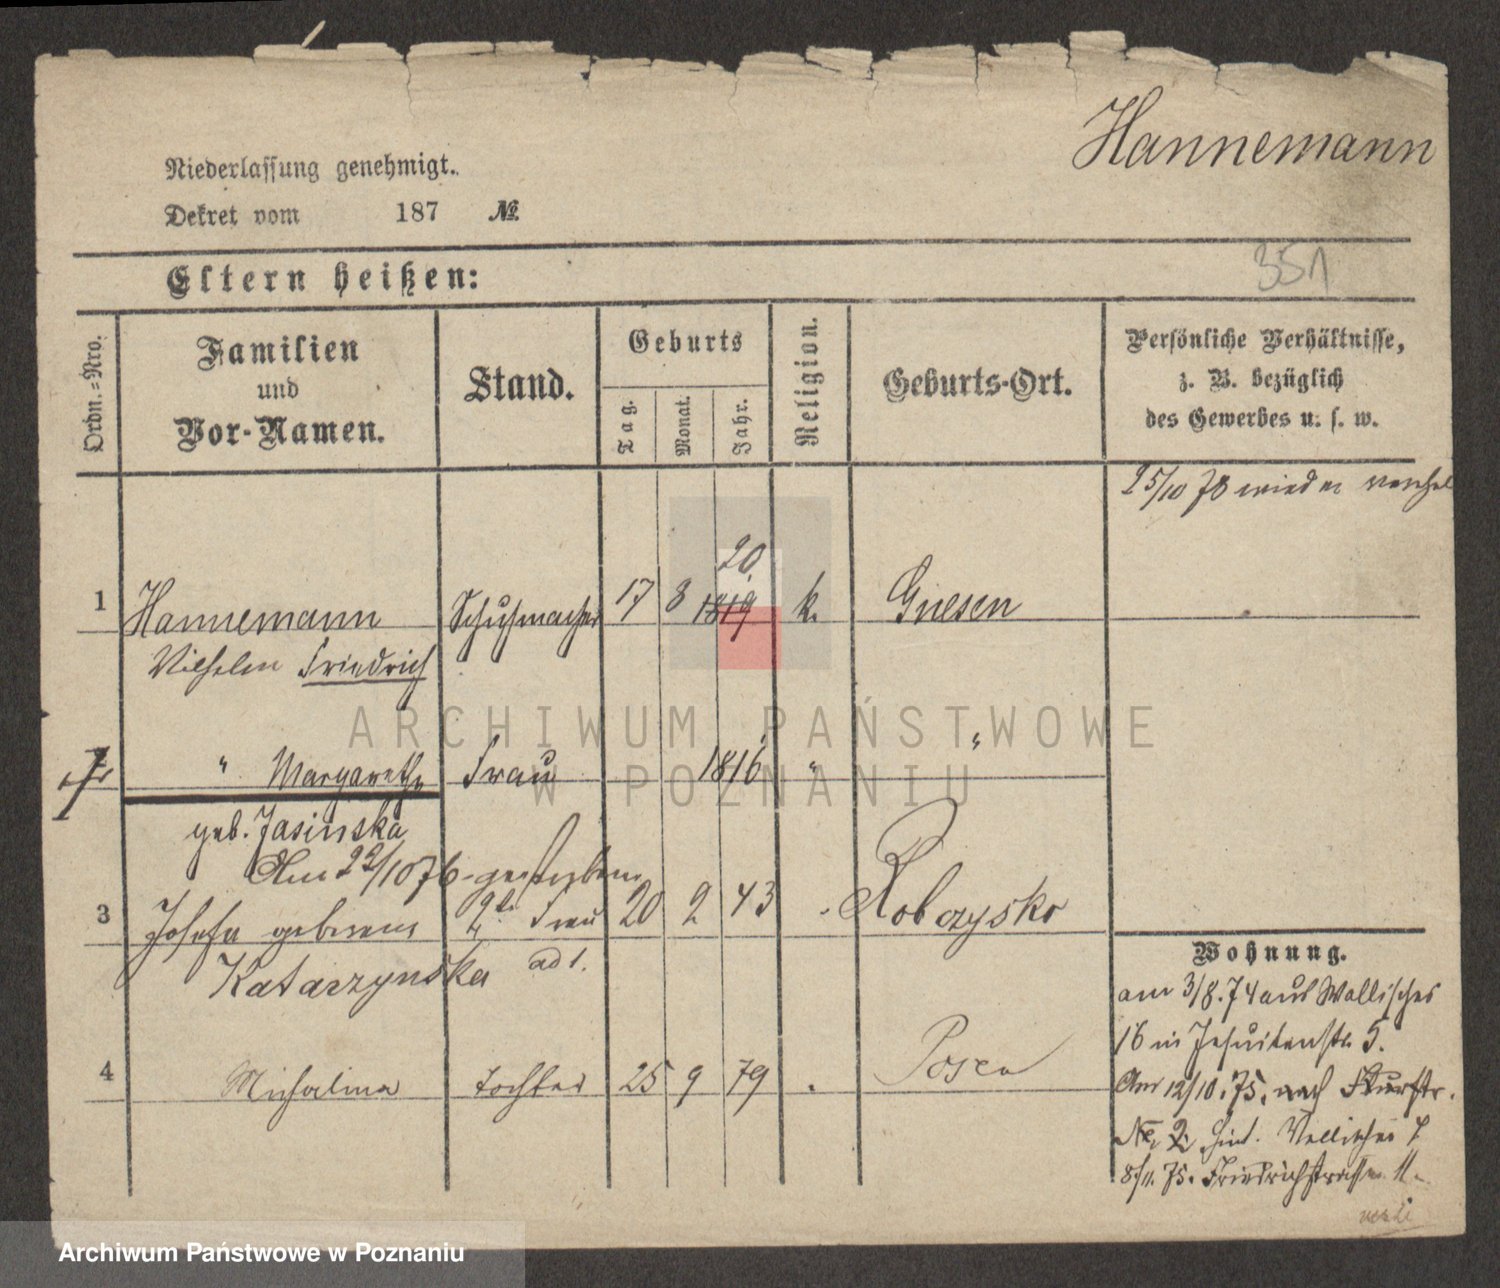 Hannemann
Niederlassung genehmigt.
Dekret vom 187 №
351
Eltern heißen:
Ordn.=Nro.
Familien
und
Vor-Namen.
Stand.
Geburts
Tag.
Monat.
Jahr.
Religion.
Geburts-Ort.
Persönliche Verhältnisse,
z. B. bezüglich
des Gewerbes u. s. w.
25/10 78 wieder verehel
20.
1 Hannemann Schuhmacher 17 8 1819 k. Gnesen
Wilhelm Friedrich
" Margarethe Frau 1816 " "
geb. Jasinska
Am 22/10 76 gestorben
3 Josefa geborene 2te Frau 20 2 43
Katarzynska ad 1.
4 Michalina Tochter 25 9 79 Posen
Wohnung.
am 3/8. 74 aus Wallischei
16 in Jesuitenstr 5.
Am 12/10. 75. nach
No 2 hint. Wallischei 7
8/11. 75. Friedrichstrasse 11.
ARCHIWUM PAŃSTWOWE
W POZNANIU
Archiwum Państwowe w Poznaniu